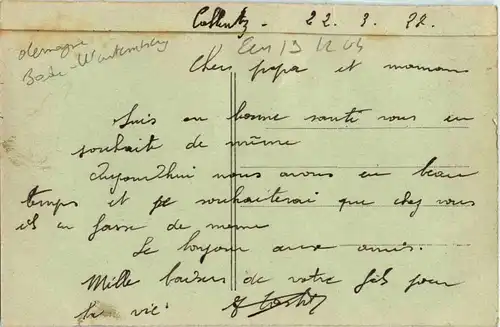 Coblentz - 22. 3. 22.
Allemagne
Bade-Wurtemberg
Chers papa et maman
Suis en bonne santé vous en
souhaite de même
Aujourd'hui nous avons eu beau
temps et je souhaiterai que chez vous
il en fasse de même
Le bonjour aux amis.
Mille baisers de votre fils pour
la vie